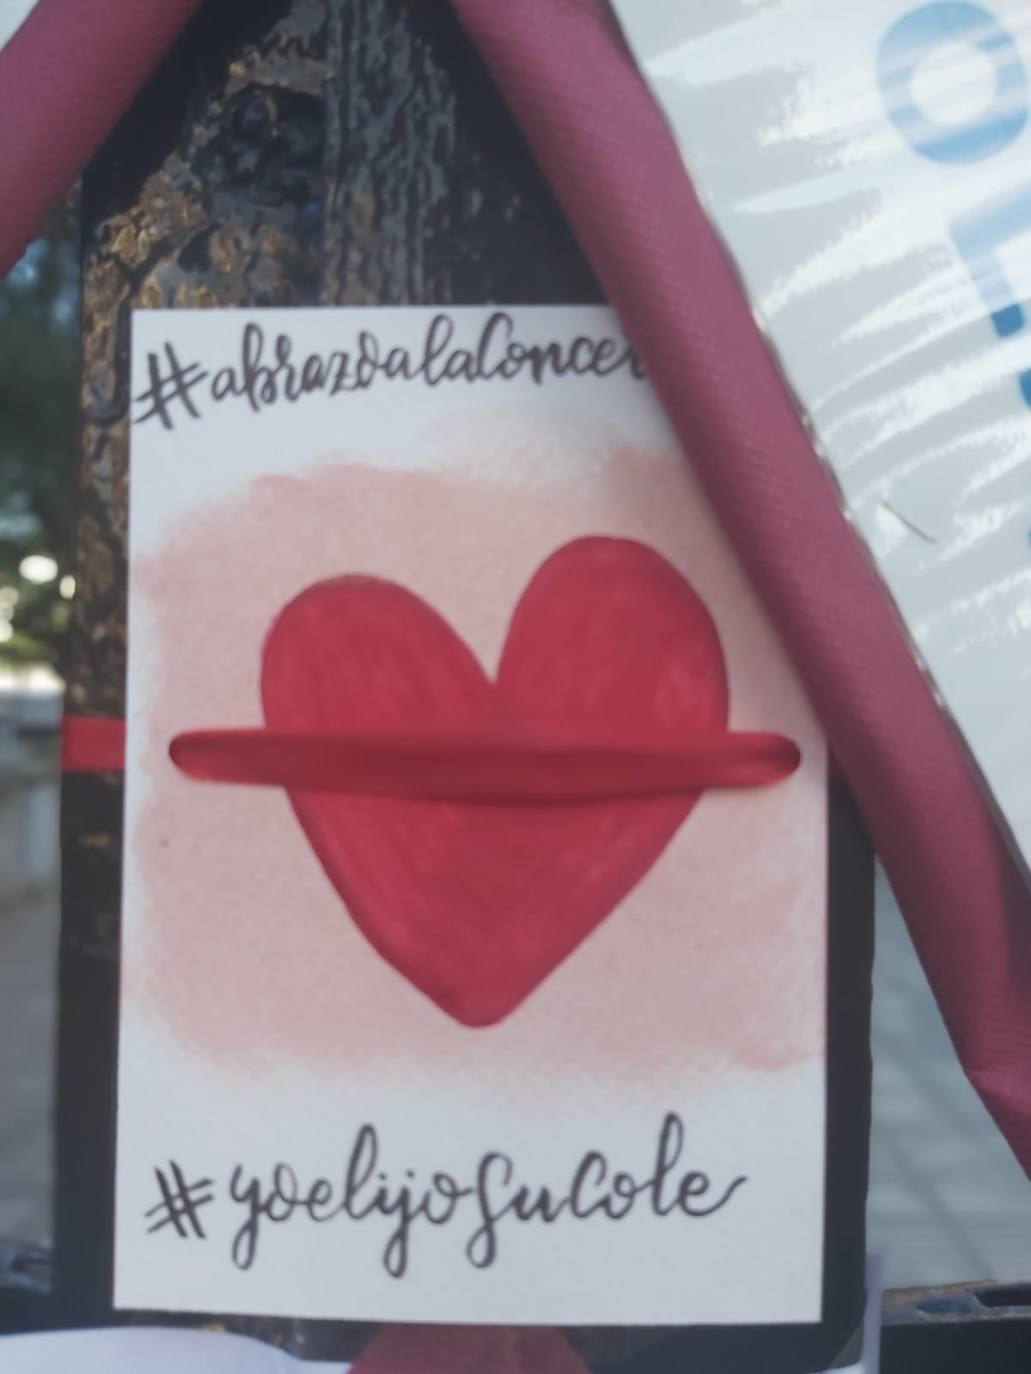 #abrazoalaConce
#yoelijosuCole